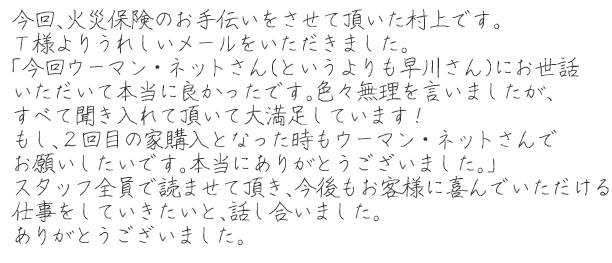 今回、火災保険のお手伝いをさせて頂いた村上です。
T様よりうれしいメールをいただきました。
「今回ウーマン・ネットさん(というよりも早川さん)にお世話
いただいて本当に良かったです。色々無理を言いましたが、
すべて聞き入れて頂いて大満足しています！
もし、2回目の家購入となった時もウーマン・ネットさんで
お願いしたいです。本当にありがとうございました。」
スタッフ全員で読ませて頂き、今後もお客様に喜んでいただける
仕事をしていきたいと、話し合いました。
ありがとうございました。